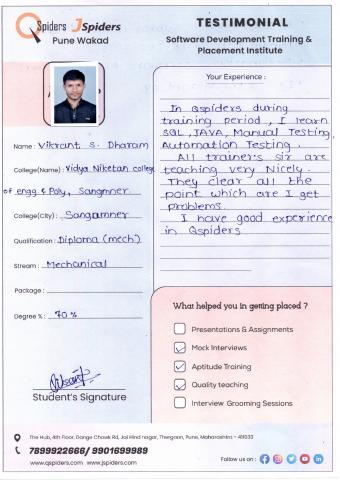 QSpiders JSpiders
Pune Wakad
TESTIMONIAL
Software Development Training &
Placement Institute
Name : Vikrant S. Dharam
College(Name) : Vidya Niketan college
of engg. & Poly, Sangmner
College(City) : Sangamner
Qualification : Diploma (mech)
Stream : Mechanical
Package :
Degree % : 70 %
Student's Signature
Your Experience :
In Qspiders during
training period , I learn
SQL, JAVA, Manual Testing,
Automation Testing .
All trainer's sir are
teaching very Nicely.
They clear all the
point which are I get
problems.
I have good experience
in Qspiders
What helped you in getting placed ?
Presentations & Assignments
Mock Interviews
Aptitude Training
Quality teaching
Interview Grooming Sessions
The Hub, 4th Floor, Dange Chowk Rd, Jai Hind nagar, Thergaon, Pune, Maharashtra - 411033
7899922666/ 9901699989
www.qspiders.com www.jspiders.com
Follow us on :